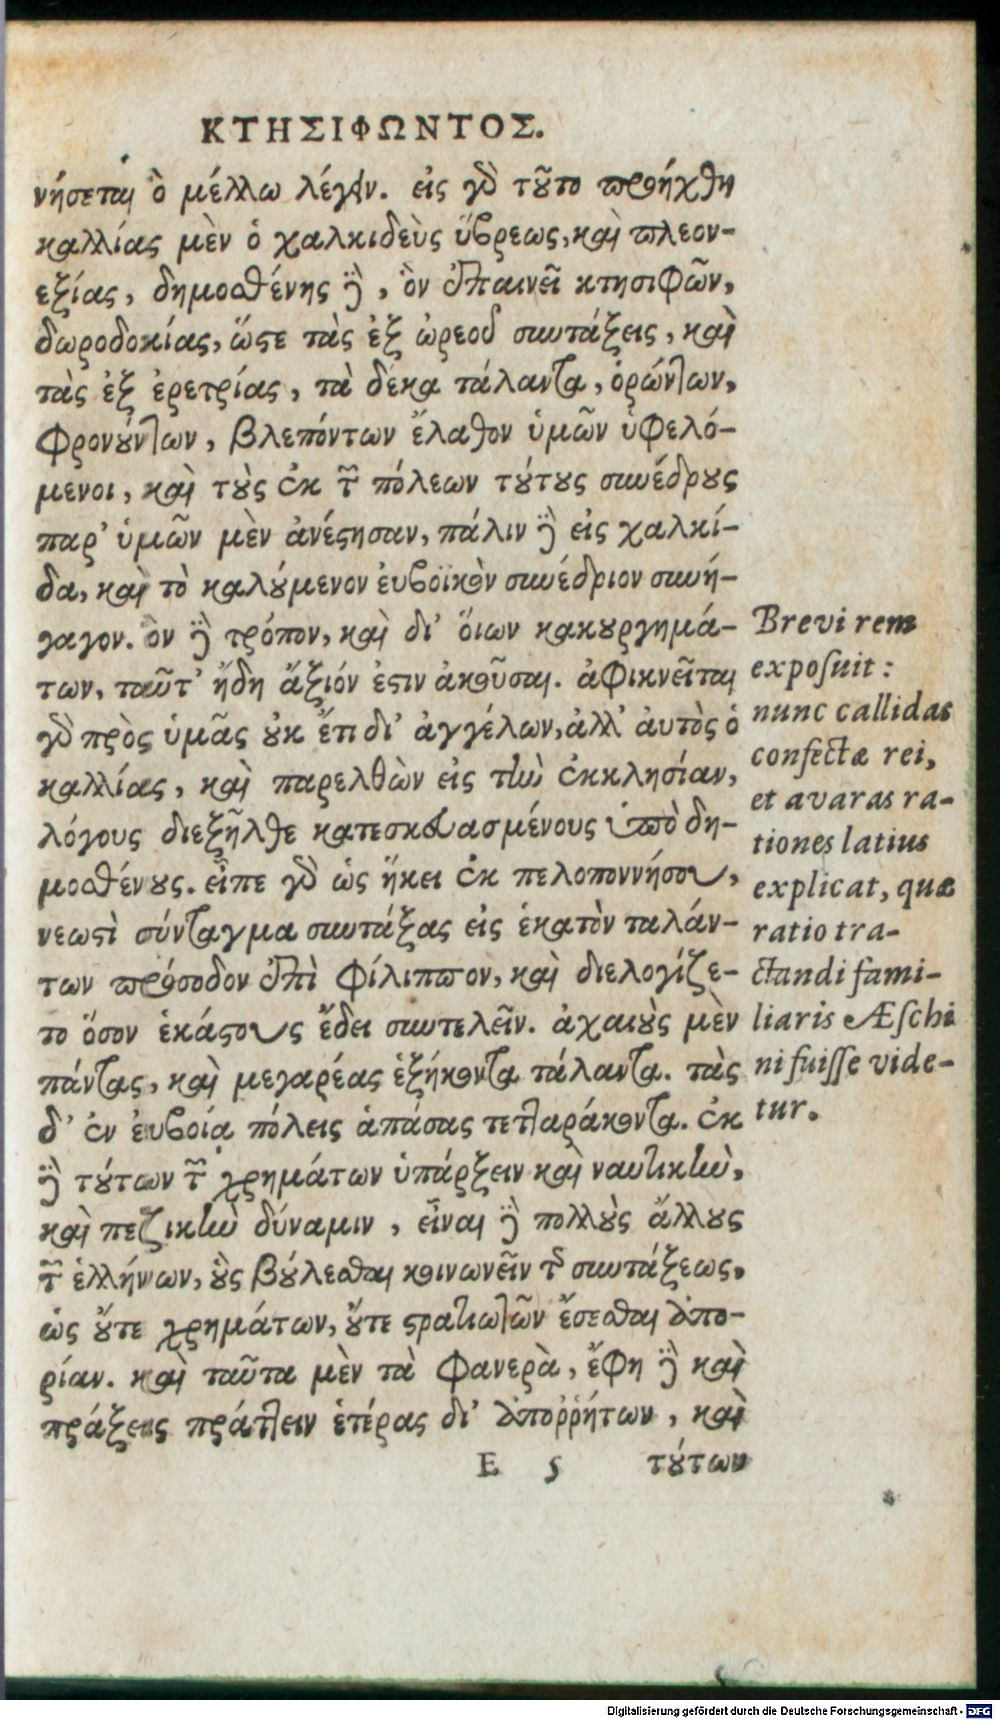 ΚΤΗΣΙΦΩΝΤΟΣ.
νήσεται ὃ μέλλω λέγειν. εἰς γὸ τȣ͂το προήχθη
καλλίας μὲν ὁ χαλκιδεὺς ὕβρεως, καὶ πλεον-
εξίας, δημοσθένης δὲ, ὃν ἐπαινεῖ κτησιφῶν,
δωροδοκίας, ὥστε τὰς ἐξ ὠρεοῦ συντάξεις, καὶ
τὰς ἐξ ἐρετρίας, τὰ δέκα τάλαντα, ὁρώντων,
φρονȣ́ντων, βλεπόντων ἔλαθον ὑμῶν ὑφελό-
μενοι, καὶ τȣ̀ς ἐκ τῶν πόλεων τȣ́τȣς συνέδρȣς
παρ' ὑμῶν μὲν ἀνέστησαν, πάλιν δὲ εἰς χαλκί-
δα, καὶ τὸ καλȣ́μενον ἐυβοϊκὸν συνέδριον συνή-
γαγον. ὃν δὲ τρόπον, καὶ δι' ὅιων κακȣργημά-
των, ταῦτ' ἤδη ἄξιόν ἐστιν ἀκοῦσαι. ἀφικνεῖται
γὸ πρὸς ὑμᾶς ȣ̓κ ἔτι δι' ἀγγέλων, ἀλλ' ἀυτὸς ὁ
καλλίας, καὶ παρελθὼν εἰς τὴν ἐκκλησίαν,
λόγους διεξῆλθε κατεσκευασμένους ὑπὸ δη-
μοσθένȣς. εἶπε γὸ ὡς ἥκει ἐκ πελοποννήσου,
νεωστὶ σύνταγμα συντάξας εἰς ἑκατὸν ταλάν-
των πρόσοδον ἐπὶ φίλιππον, καὶ διελογίζε-
το ὅσον ἑκάστους ἔδει συντελεῖν. ἀχαιȣ̀ς μὲν
πάντας, καὶ μεγαρέας ἑξήκοντα τάλαντα. τὰς
δ' ἐν ἐυβοίᾳ πόλεις ἁπάσας τετταράκοντα. ἐκ
δὲ τȣ́των τῶν χρημάτων ὑπάρξειν καὶ ναυτικὴν,
καὶ πεζικὴν δύναμιν, εἶναι δὲ πολλȣ̀ς ἄλλȣς
τῶν ἑλλήνων, ȣ̔̀ς βȣ́λεσθαι κοινωνεῖν τῆς συντάξεως,
ὡς ȣ̓́τε χρημάτων, ȣ̓́τε στρατιωτῶν ἔσεσθαι ἀπο-
ρίαν. καὶ ταῦτα μὲν τὰ φανερὰ, ἔφη δὲ καὶ
πράξεις πράττειν ἑτέρας δι' ἀποῤῥήτων, καὶ
E 5 τȣ́των
Brevi rem
exposuit:
nunc callidas
confectæ rei,
et avaras ra-
tiones latius
explicat, quæ
ratio tra-
ctandi fami-
liaris Æschi
ni fuisse vide-
tur.
Digitalisierung gefördert durch die Deutsche Forschungsgemeinschaft - DFG